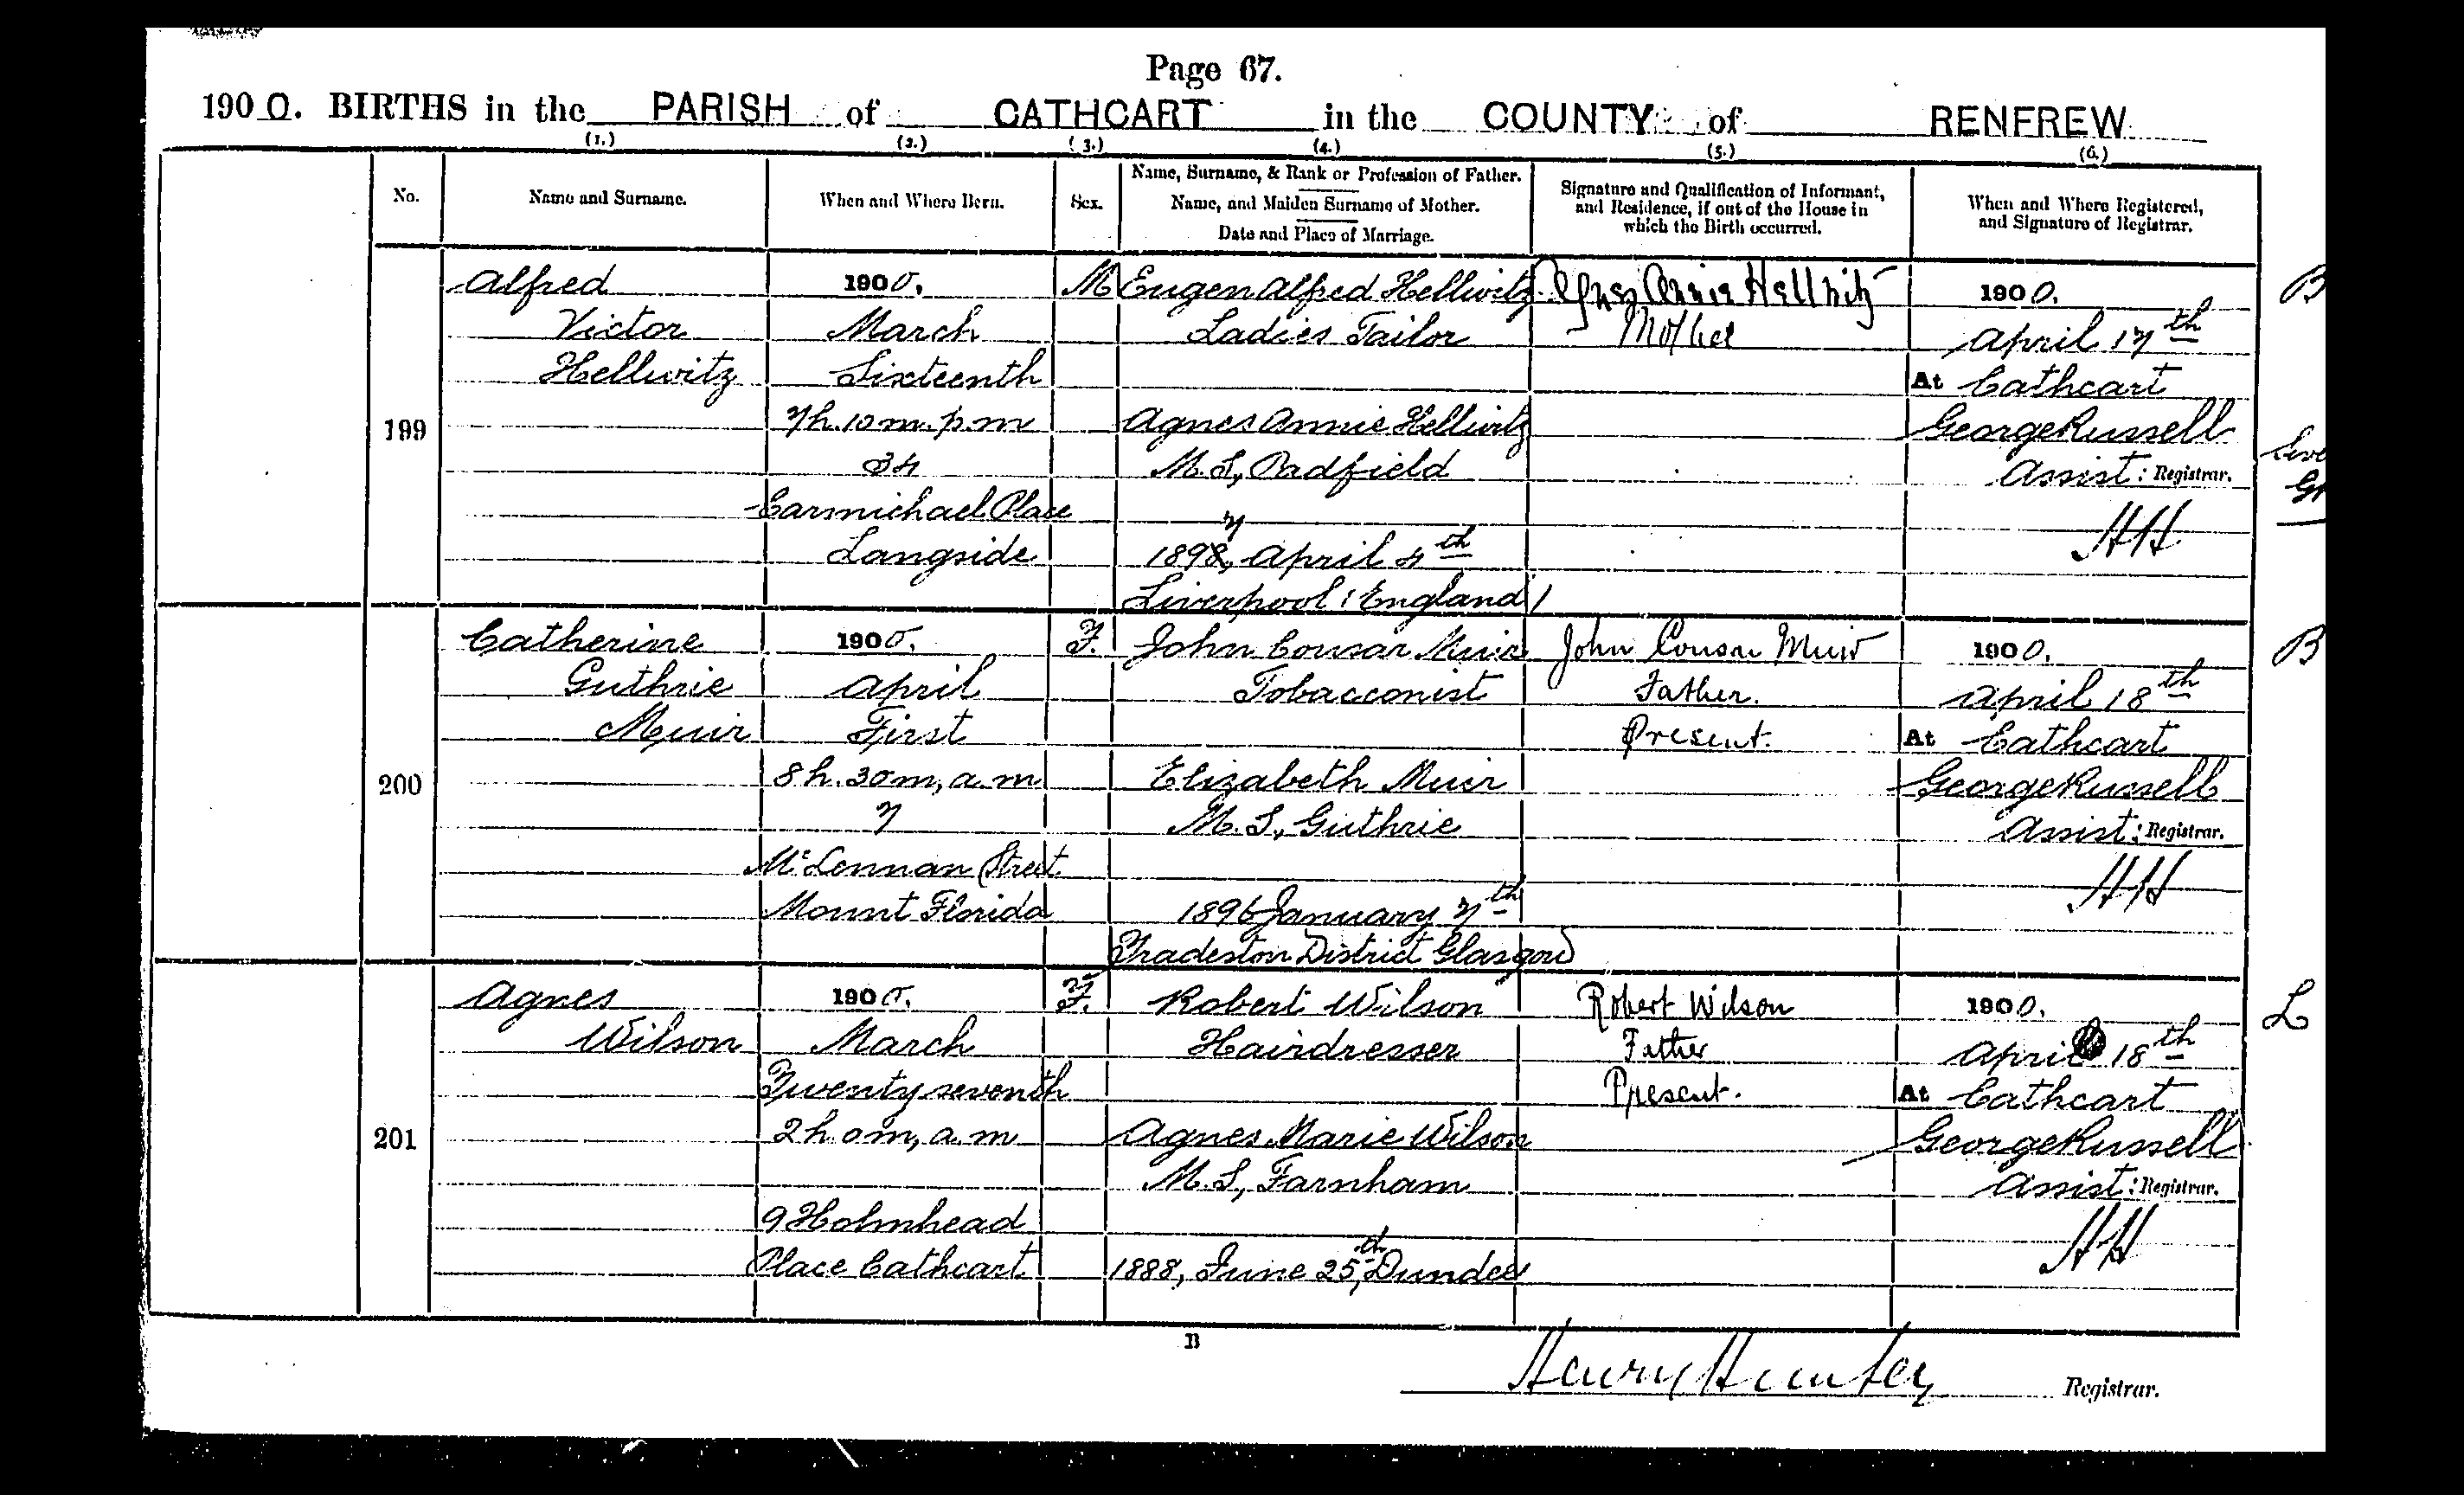 Page 67.
1900. BIRTHS in the PARISH of CATHCART in the COUNTY of RENFREW
(1.) (2.) (3.) (4.) (5.) (6.)
No.
Name and Surname.
When and Where Born.
Sex.
Name, Surname, & Rank or Profession of Father.
Name, and Maiden Surname of Mother.
Date and Place of Marriage.
Signature and Qualification of Informant,
and Residence, if out of the House in
which the Birth occurred.
When and Where Registered,
and Signature of Registrar.
199
Alfred
Victor
Hellwitz
1900,
March
Sixteenth
7h. 10m. p.m
34
Carmichael Place
Langside
M
Eugen Alfred Hellwitz
Ladies Tailor
Agnes Annie Hellwitz
M.S, Padfield
7
1898, April 4th
Liverpool (England)
Agnes Annie Hellwitz
Mother
1900.
April 17th
At Cathcart
George Russell
Assist: Registrar.
HH
B
200
Catherine
Guthrie
Muir
1900.
April
First
8h. 30m, a.m
7
McLennan Street
Mount Florida
F.
John Cousar Muir
Tobacconist
Elizabeth Muir
M.S, Guthrie
1896 January 7th
Tradeston District Glasgow
John Cousar Muir
Father.
Present.
1900.
April 18th
At Cathcart
George Russell
Assist: Registrar.
HH
B
201
Agnes
Wilson
1900.
March
Twenty seventh
2h. 0m, a.m
9 Holmhead
Place Cathcart
F.
Robert Wilson
Hairdresser
Agnes Marie Wilson
M.S, Farnham
1888, June 25th, Dundee
Robert Wilson
Father
Present.
1900.
April 18th
At Cathcart
George Russell
Assist: Registrar.
HH
L
B
Henry Hunter Registrar.